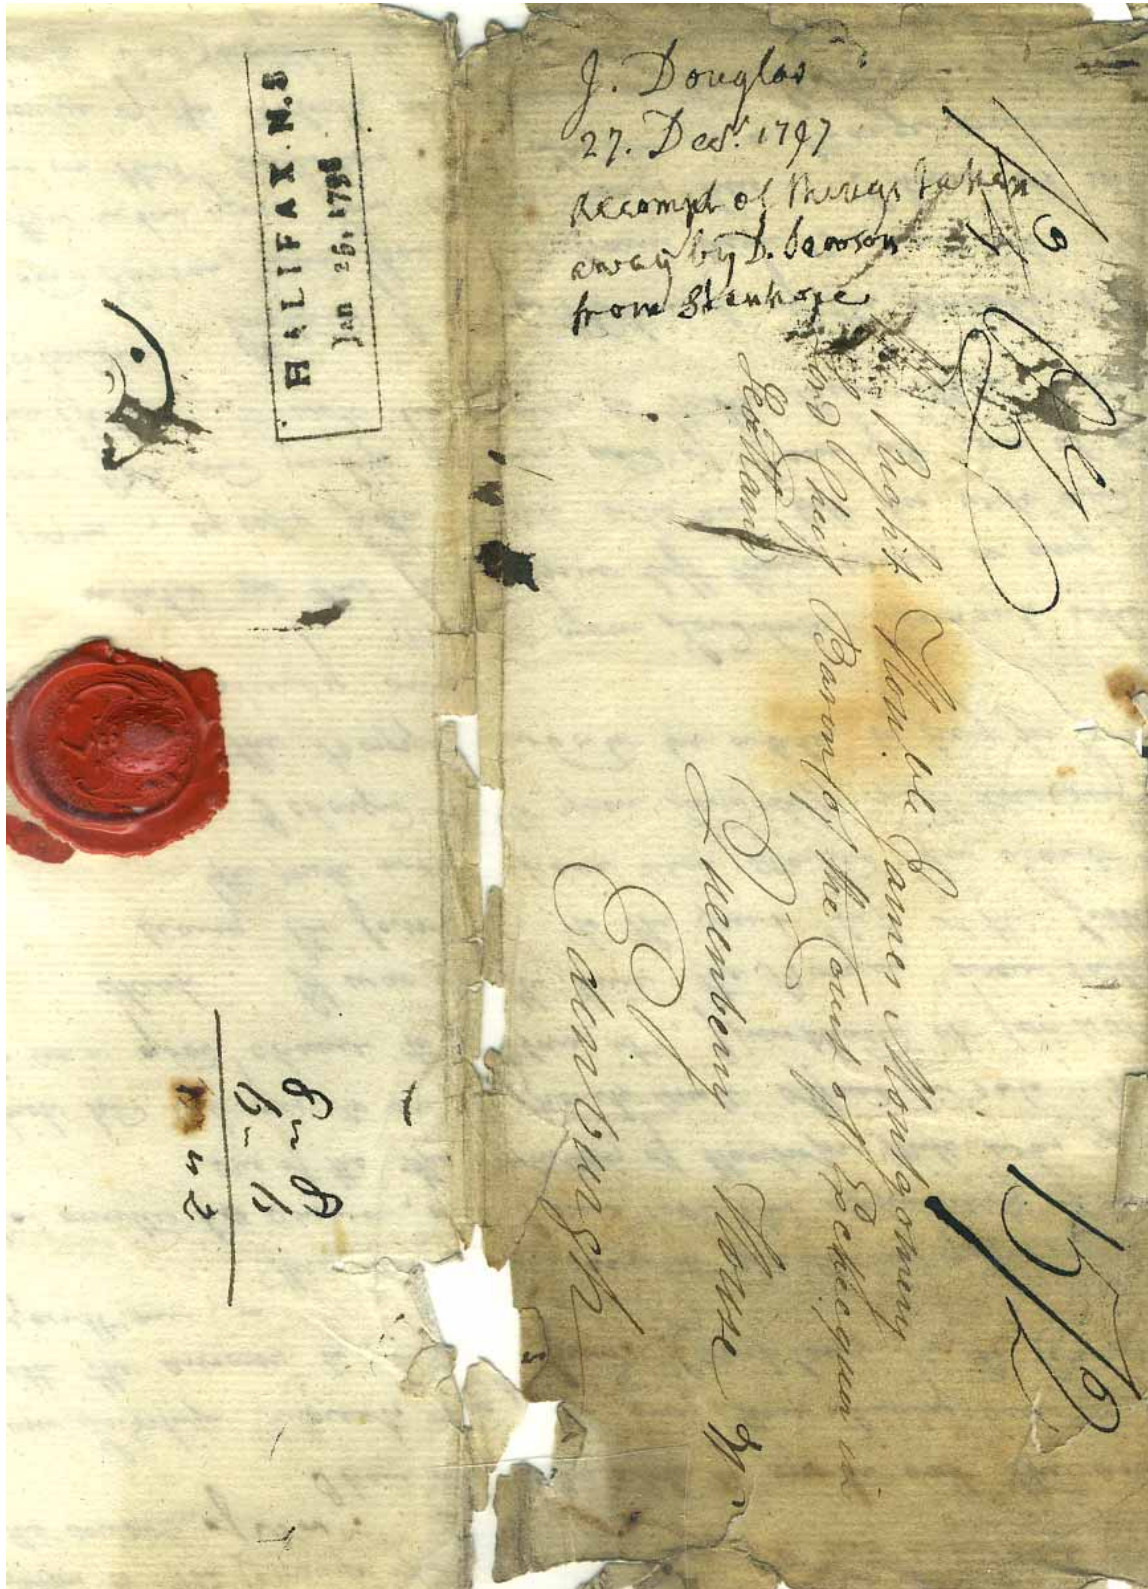 HALIFAX N.S
Jan 26, 1798
J. Douglas
27. Decr. 1797
Accompt of things taken
away by D. Lawson
from Stanhope
Right Hon.ble James Montgomery
Lord Chief Baron of the Court of Exchequer in
Scotland
Queensberry House
Edinburgh
8 " 8
6 " 6
2 " 2